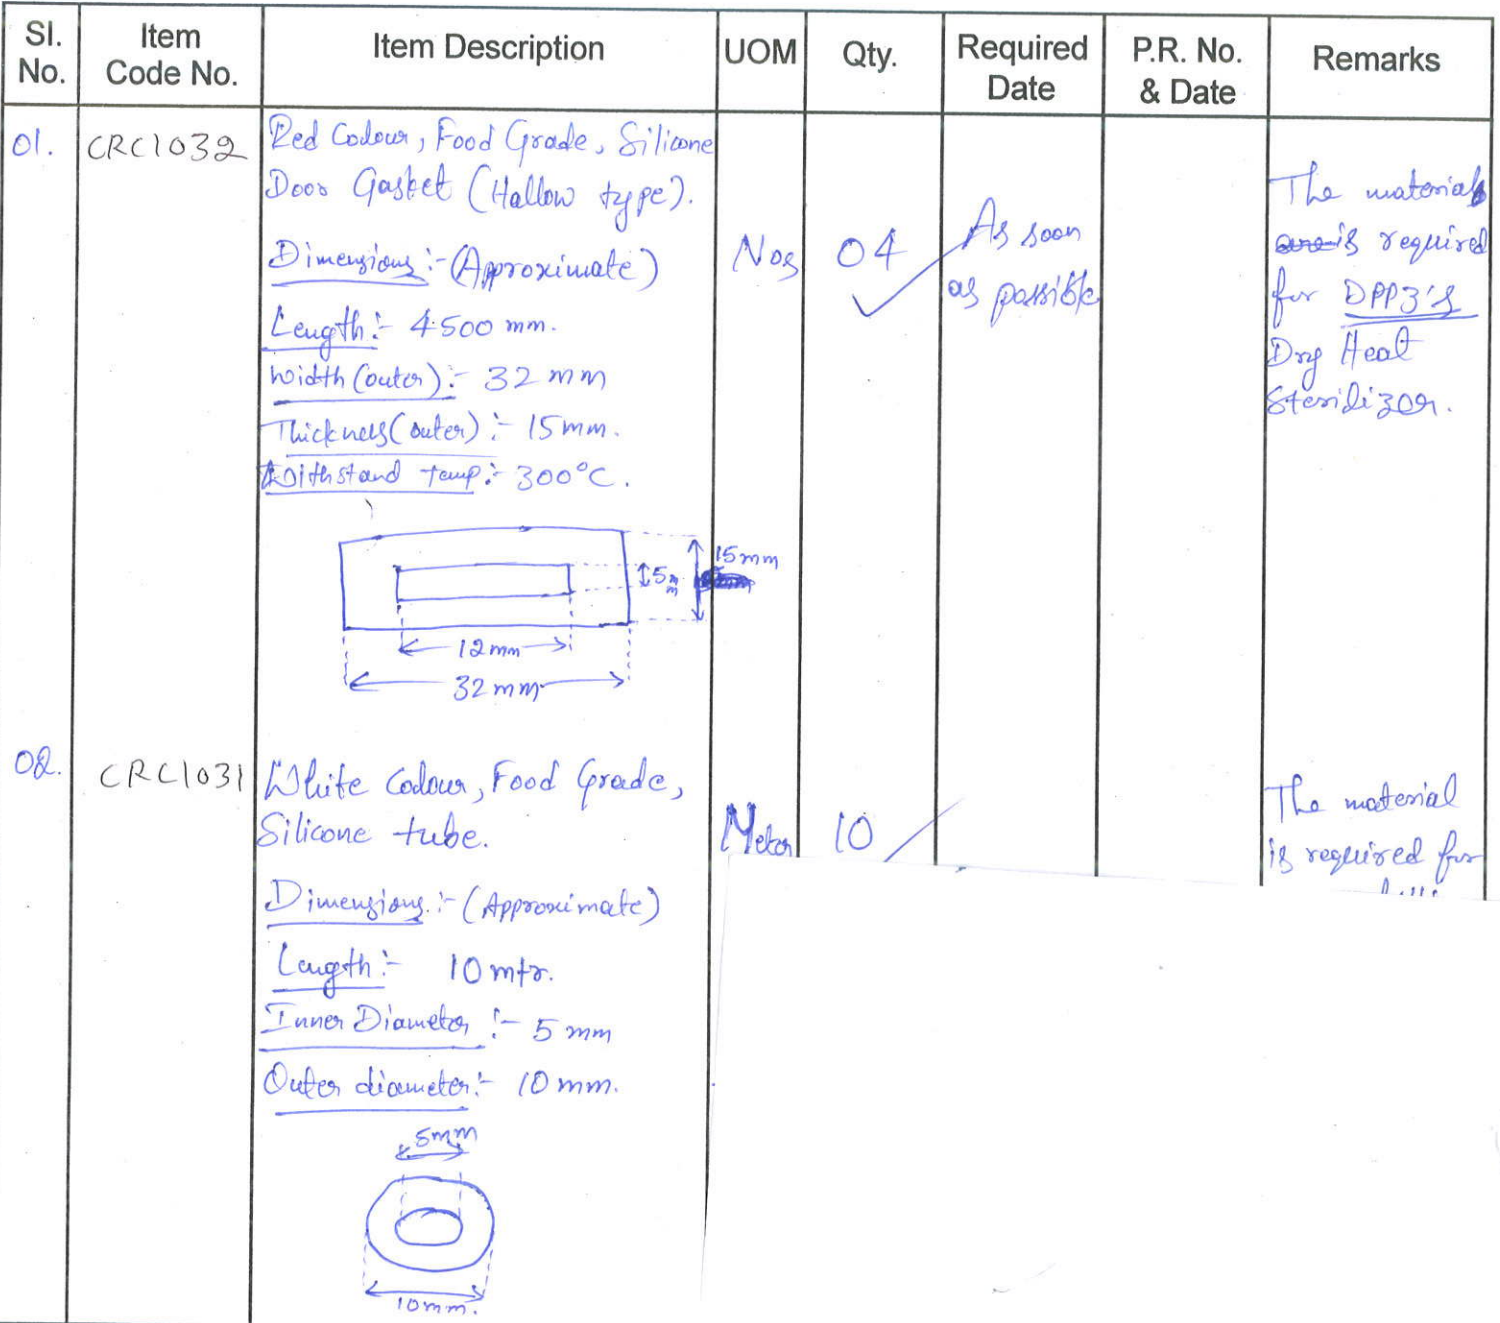 Sl. No.
Item Code No.
Item Description
UOM
Qty.
Required Date
P.R. No. & Date
Remarks
01.
CRC1032
Red Colour, Food Grade, Silicone
Door Gasket (Hallow type).
Dimensions:- (Approximate)
Length:- 4500 mm.
Width (outer):- 32 mm
Thickness (outer):- 15 mm.
Withstand temp:- 300°C.
15mm
5mm
12mm
32 mm
Nos
04
As soon
as possible
The material
is required
for DPP3's
Dry Heat
Sterilizer.
02.
CRC1031
White Colour, Food Grade,
Silicone tube.
Dimensions:- (Approximate)
Length:- 10 mtr.
Inner Diameter:- 5 mm
Outer diameter:- 10 mm.
5mm
10mm.
Meter
10
The material
is required for